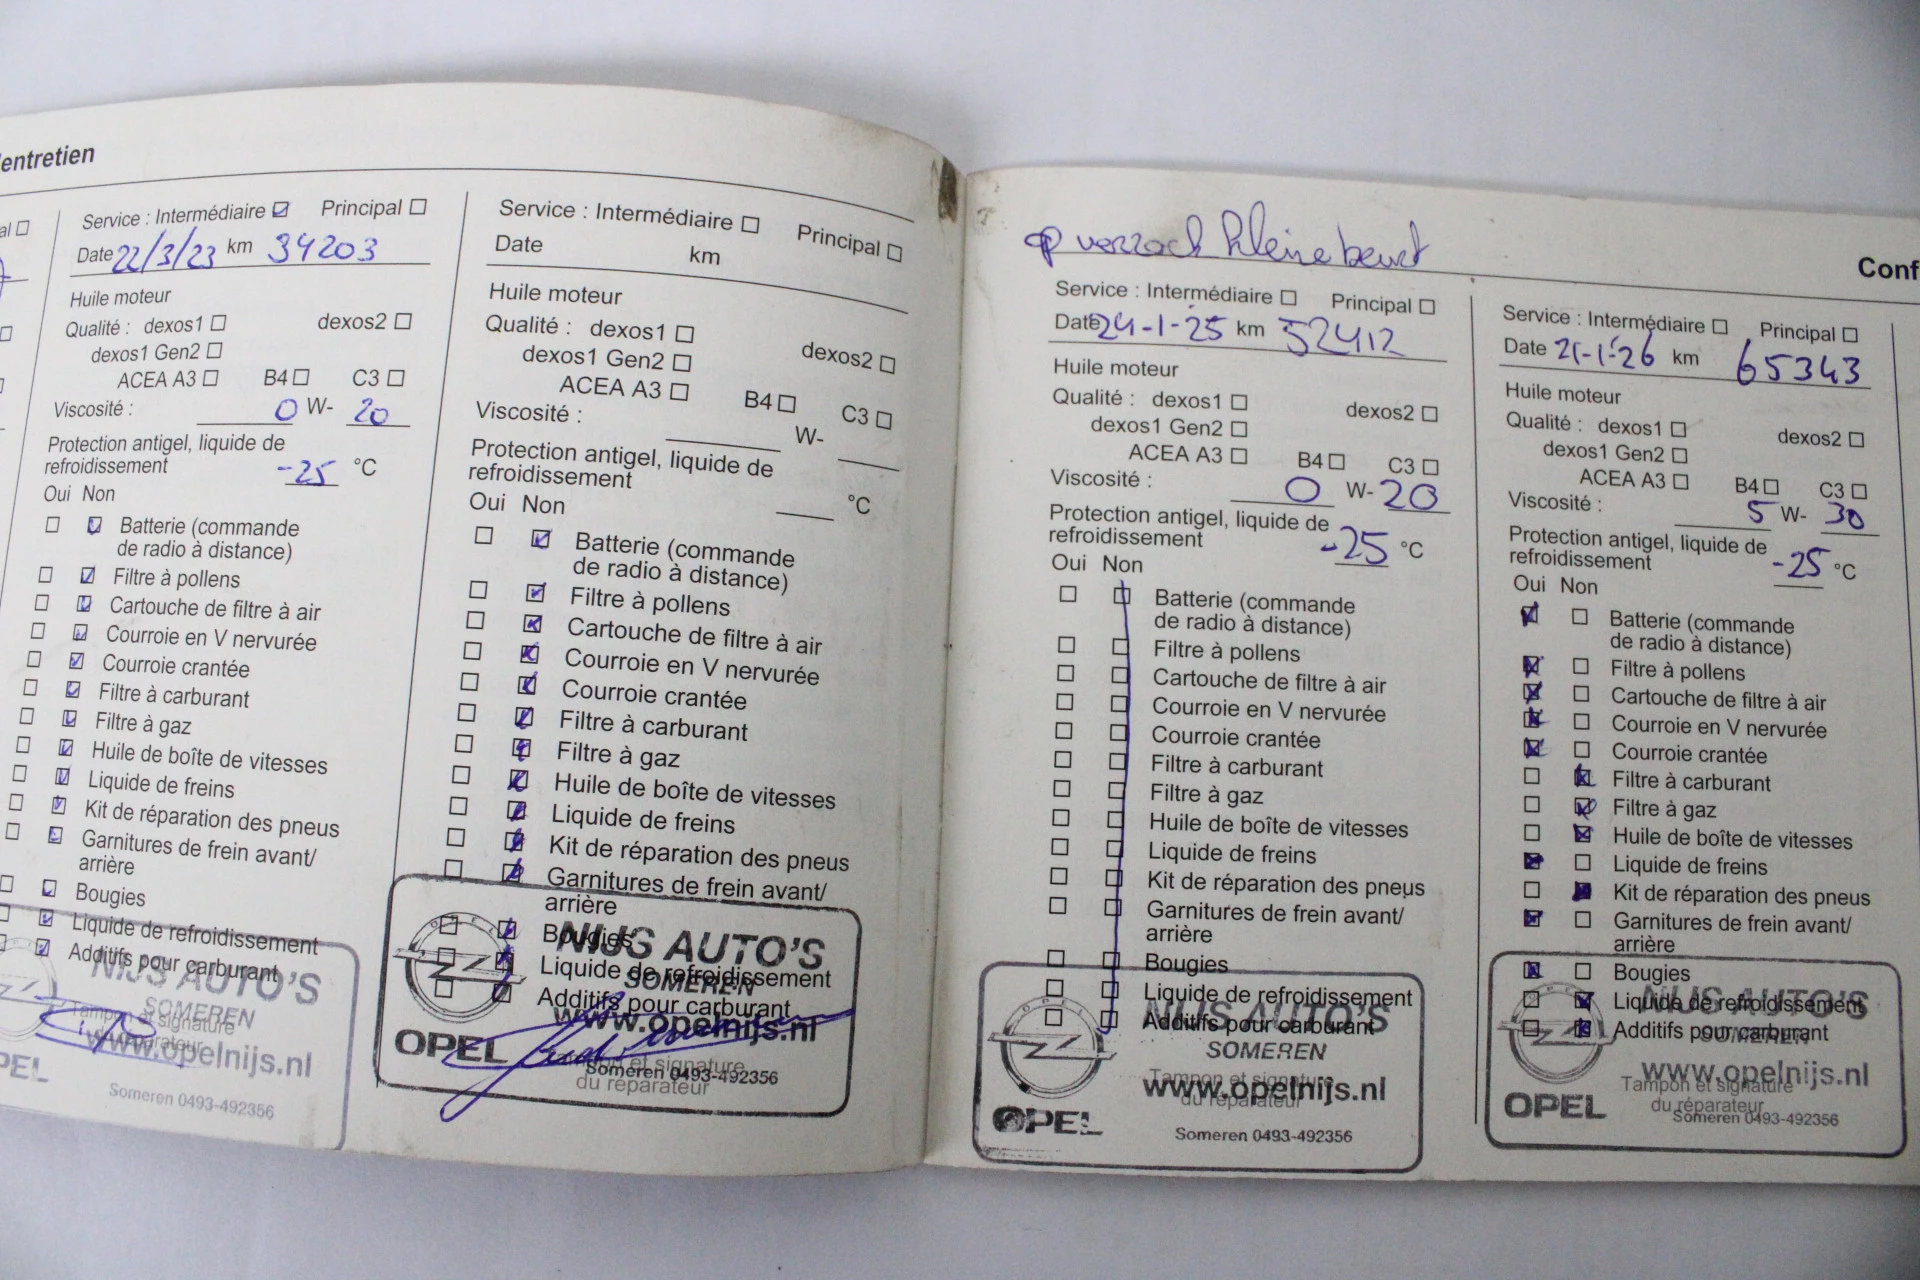 entretien
al
Service : Intermédiaire Principal
Date 22/3/23 km 34203
Huile moteur
Qualité : dexos1 dexos2
dexos1 Gen2
ACEA A3 B4 C3
Viscosité : 0 W- 20
Protection antigel, liquide de
refroidissement -25 °C
Oui Non
Batterie (commande
de radio à distance)
Filtre à pollens
Cartouche de filtre à air
Courroie en V nervurée
Courroie crantée
Filtre à carburant
Filtre à gaz
Huile de boîte de vitesses
Liquide de freins
Kit de réparation des pneus
Garnitures de frein avant/
arrière
Bougies
Liquide de refroidissement
Additifs pour carburant
NIJS AUTO'S
SOMEREN
Tampon et signature
du réparateur
www.opelnijs.nl
PEL
Someren 0493-492356
Service : Intermédiaire Principal
Date km
Huile moteur
Qualité : dexos1 dexos2
dexos1 Gen2
ACEA A3 B4 C3
Viscosité : W-
Protection antigel, liquide de
refroidissement °C
Oui Non
Batterie (commande
de radio à distance)
Filtre à pollens
Cartouche de filtre à air
Courroie en V nervurée
Courroie crantée
Filtre à carburant
Filtre à gaz
Huile de boîte de vitesses
Liquide de freins
Kit de réparation des pneus
Garnitures de frein avant/
arrière
Bougies
NIJS AUTO'S
Liquide de refroidissement
SOMEREN
Additifs pour carburant
www.opelnijs.nl
OPEL
Tampon et signature
du réparateur
Someren 0493-492356
op verzoek kleine beurt
Service : Intermédiaire Principal
Date 24-1-25 km 52412
Huile moteur
Qualité : dexos1 dexos2
dexos1 Gen2
ACEA A3 B4 C3
Viscosité : 0 W- 20
Protection antigel, liquide de
refroidissement -25 °C
Oui Non
Batterie (commande
de radio à distance)
Filtre à pollens
Cartouche de filtre à air
Courroie en V nervurée
Courroie crantée
Filtre à carburant
Filtre à gaz
Huile de boîte de vitesses
Liquide de freins
Kit de réparation des pneus
Garnitures de frein avant/
arrière
Bougies
Liquide de refroidissement
NIJS AUTO'S
Additifs pour carburant
SOMEREN
Tampon et signature
www.opelnijs.nl
du réparateur
OPEL
Someren 0493-492356
Conf
Service : Intermédiaire Principal
Date 21-1-26 km 65343
Huile moteur
Qualité : dexos1 dexos2
dexos1 Gen2
ACEA A3 B4 C3
Viscosité : 5 W- 30
Protection antigel, liquide de
refroidissement -25 °C
Oui Non
Batterie (commande
de radio à distance)
Filtre à pollens
Cartouche de filtre à air
Courroie en V nervurée
Courroie crantée
Filtre à carburant
Filtre à gaz
Huile de boîte de vitesses
Liquide de freins
Kit de réparation des pneus
Garnitures de frein avant/
arrière
Bougies
Liquide de refroidissement
NIJS AUTO'S
Additifs pour carburant
SOMEREN
www.opelnijs.nl
Tampon et signature
du réparateur
OPEL
Someren 0493-492356